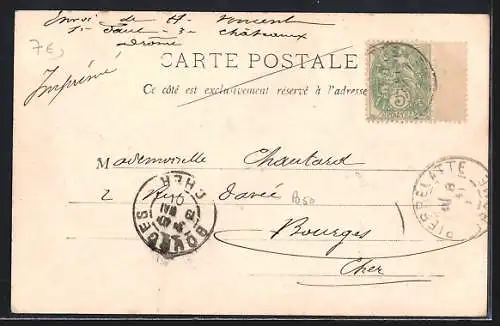 Envoi de H. Vincent
St Paul - 3 - Châteaux
Drôme
7€
CARTE POSTALE
Ce côté est exclusivement réservé à l'adresse
Imprimé
5
Mademoiselle Chautard
2 Rue B50
Bourges
Cher
BOURGES
CHER
PIERRELATTE